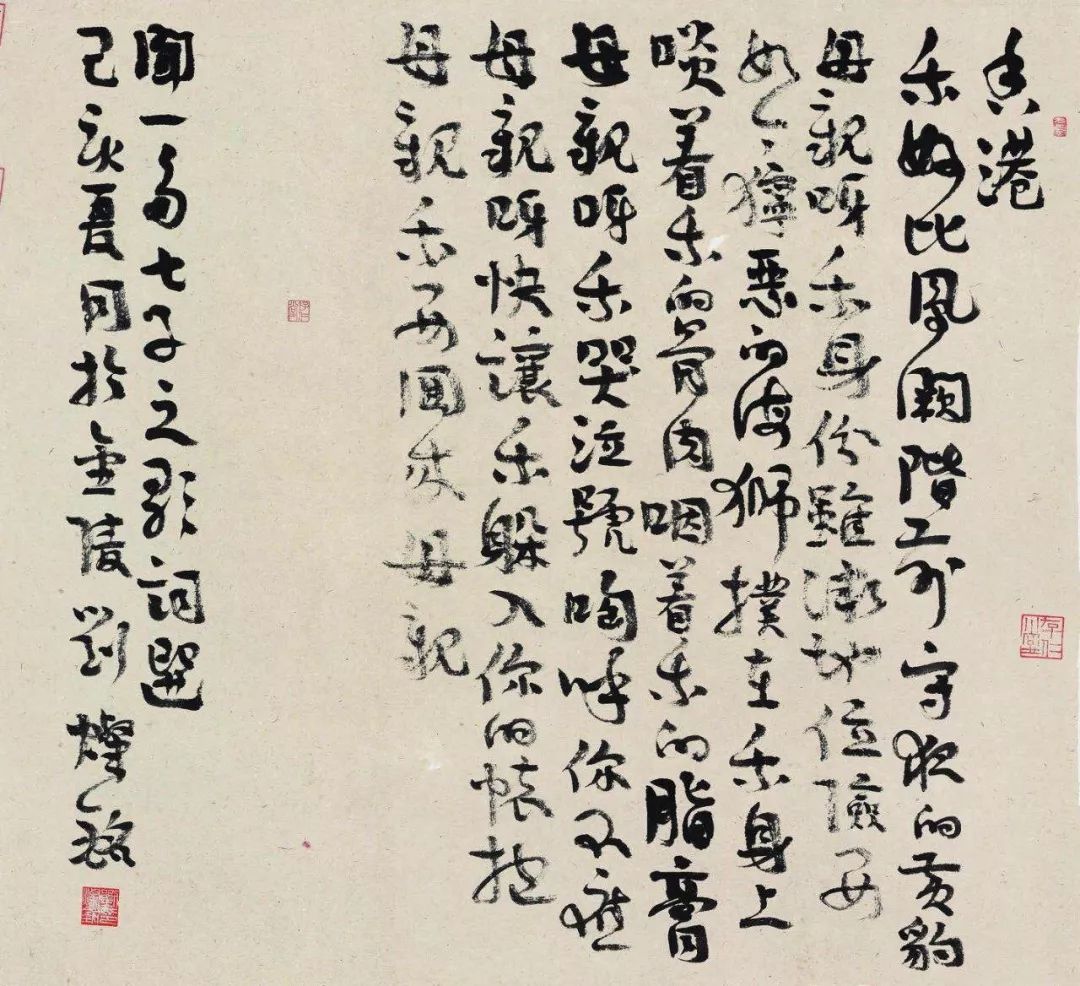 香港
我好比鳳闕階前守夜的黃豹
母親呀我身份雖微地位險要
如今獰惡的海獅撲在我身上
啖着我的骨肉咽着我的脂膏
母親呀我哭泣號啕呼你不應
母親呀快讓我躲入你的懷抱
母親我要回來母親
聞一多七子之歌詞選
己亥夏於金陵劉燦銘